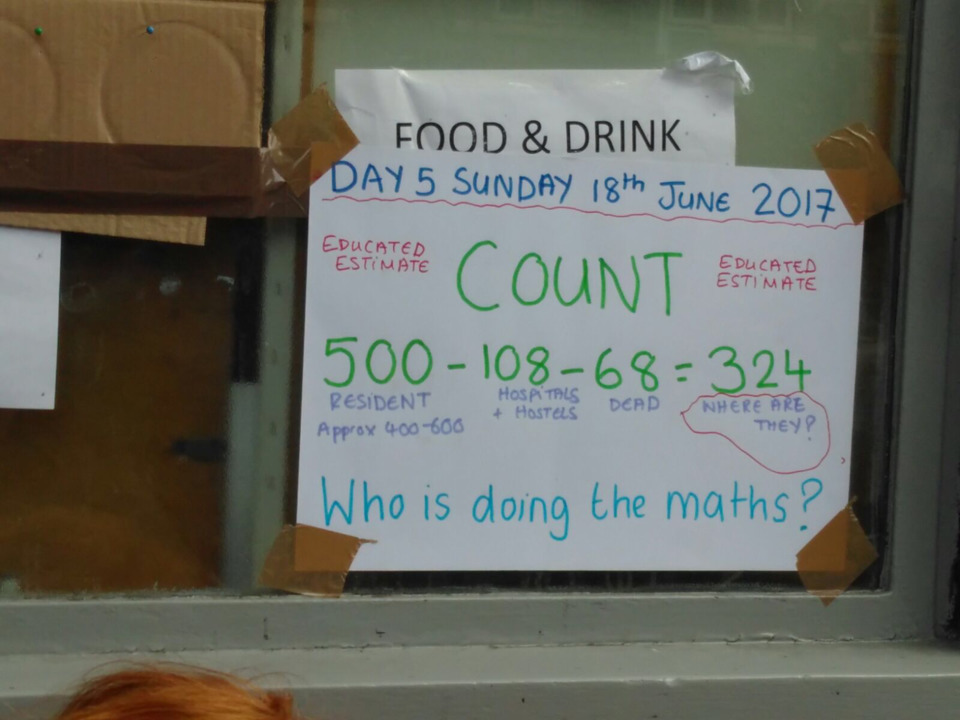 FOOD & DRINK
DAY 5 SUNDAY 18th JUNE 2017
EDUCATED ESTIMATE
COUNT
EDUCATED ESTIMATE
500 - 108 - 68 = 324
RESIDENT HOSPITALS + HOSTELS DEAD WHERE ARE THEY?
Approx 400-600
Who is doing the maths?